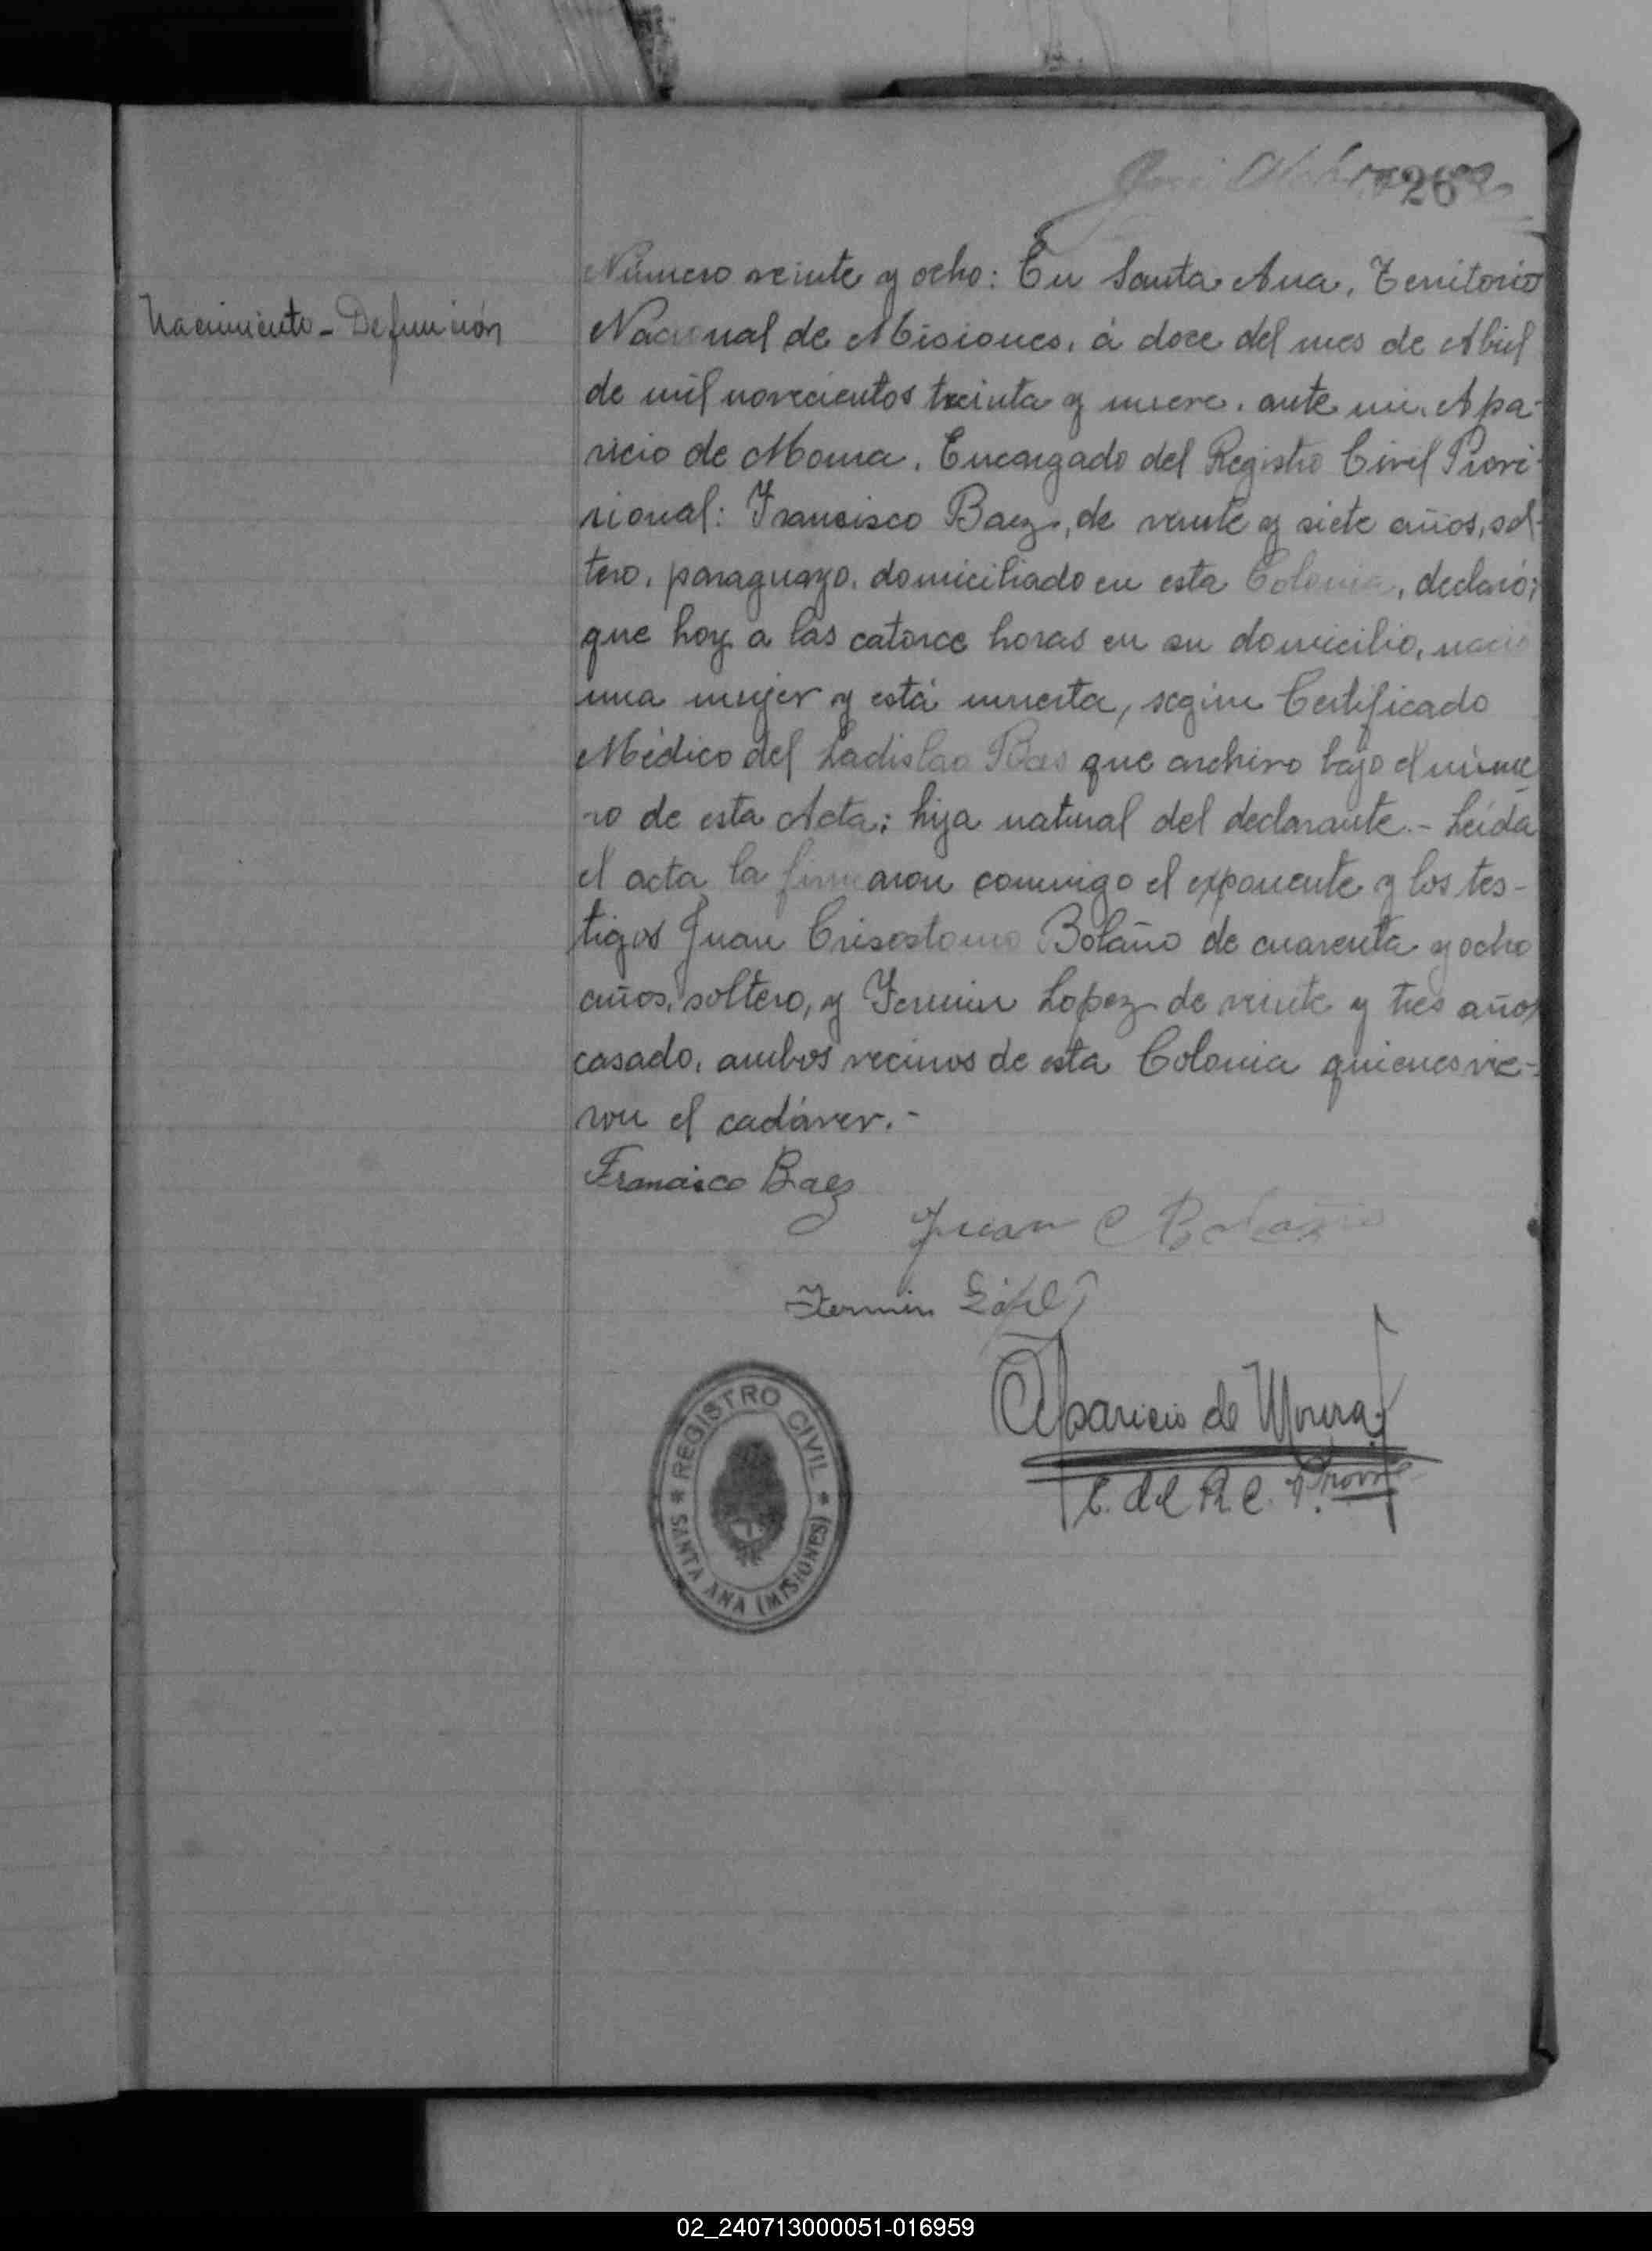 José
26
Nacimiento - Defunción
Número veinte y ocho: En Santa Ana, Territorio
Nacional de Misiones, á doce del mes de Abril
de mil novecientos treinta y nueve, ante mi, Apa-
ricio de Moura, Encargado del Registro Civil Provi-
sional: Francisco Baez, de veinte y siete años, sol-
tero, paraguayo, domiciliado en esta Colonia, declaró;
que hoy a las catorce horas en su domicilio, nació
una mujer y está muerta, según Certificado
Médico del Ladislao que archivo bajo el núme
ro de esta Acta; hija natural del declarante.- Leída
el acta la firmaron conmigo el exponente y los tes-
tigos Juan Crisostomo Bolaño de cuarenta y ocho
años, soltero, y Fermin Lopez de veinte y tres años
casado, ambos vecinos de esta Colonia quienes vie-
ron el cadáver.-
Francisco Baez
Juan C Bolaño
Fermin López
Aparicio de Moura
E. del R. C. Prov
REGISTRO CIVIL
* SANTA ANA (MISIONES) *
02_240713000051-016959